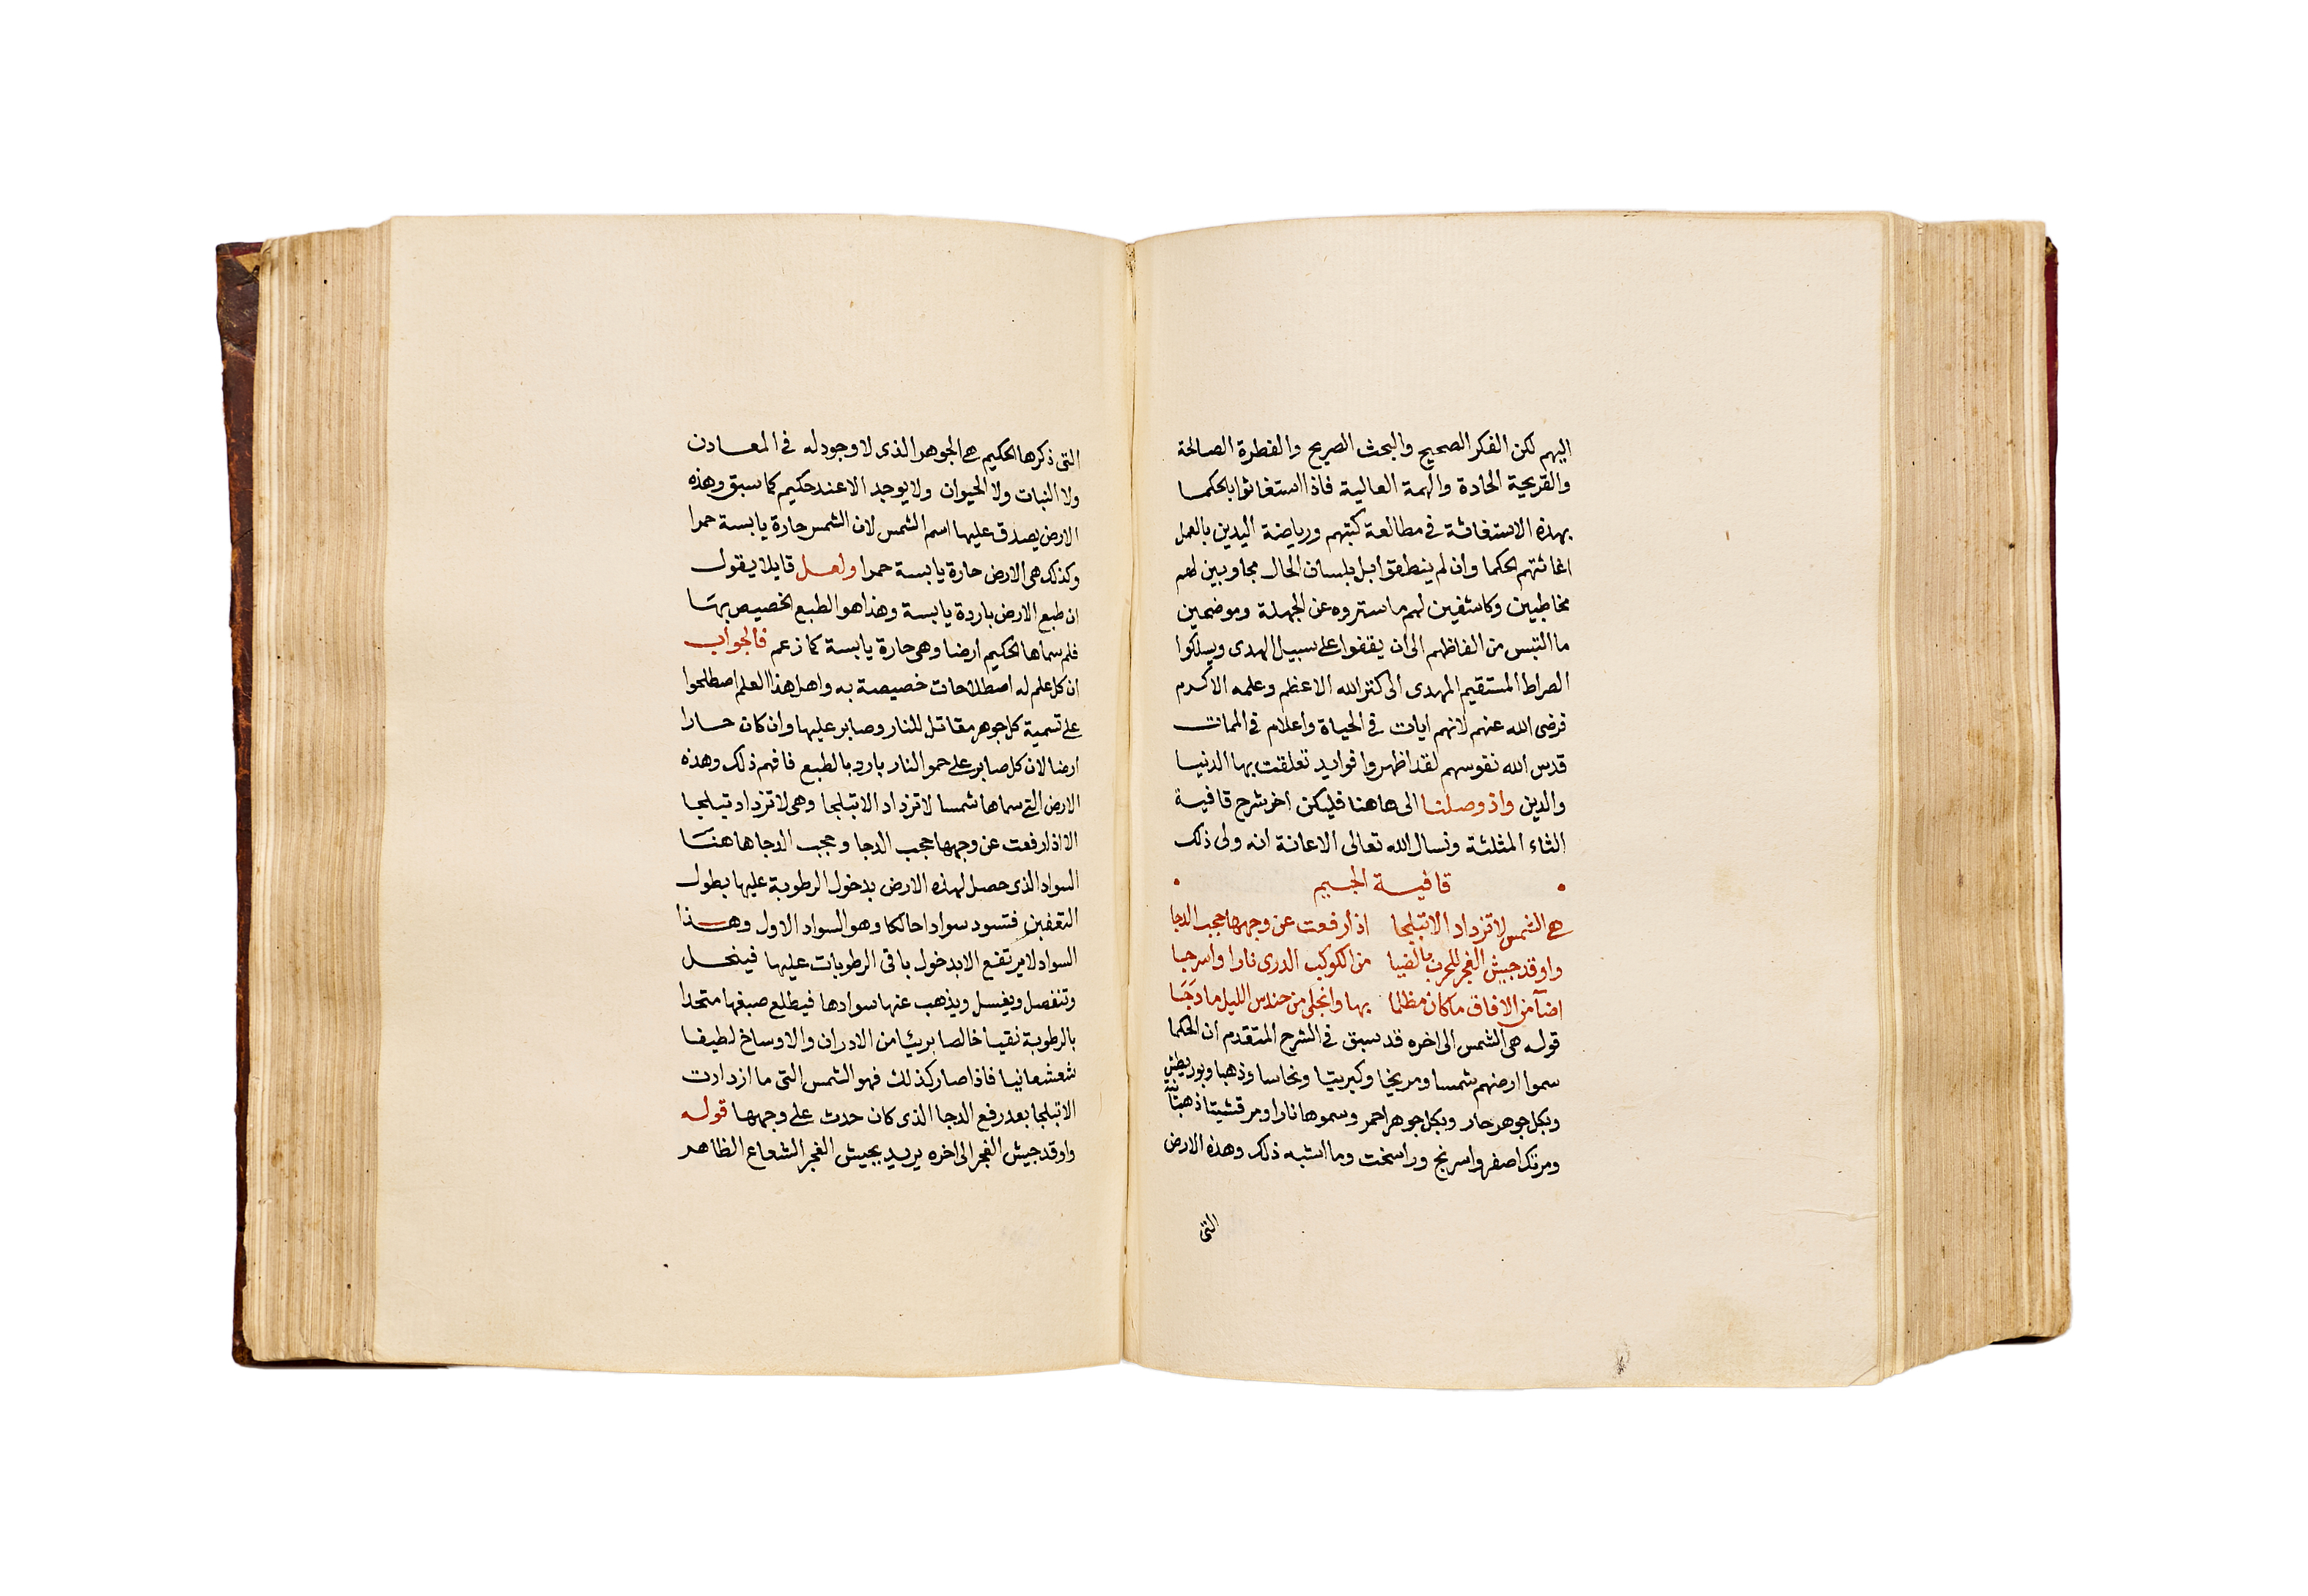 اليهم لكن الفكر الصحيح والبحث الصريح والفطرة الصالحة
والقريحة الحادة والهمة العالية فاذا استغاثوا بالحكما
بهذه الاستغاثة في مطالعة كتبهم ورياضة اليدين بالعمل
اغاثتهم الحكما وان لم ينطقوا بل بلسان الحال مجاوبين لهم
مخاطبين وكاشفين لهم ما ستروه عن الجهلة وموضحين
ما التبس من الفاظهم الى ان يقفوا على سبيل الهدى ويسلكوا
الصراط المستقيم المهدى الى كنز الله الاعظم وعلمه الاكرم
فرضى الله عنهم لانهم ايات في الحياة واعلام في الممات
قدس الله نفوسهم لقد اظهروا فوايد تعلقت بها الدنيا
والدين واذ وصلنا الى هاهنا فليكن اخر شرح قافية
الثاء المثلثة ونسال الله تعالى الاعانة انه ولى ذلك
قافية الجيم
هي الشمس لا تزداد الا تبلجا اذا رفعت عن وجهها حجب الدجا
واوقد جيش الفجر للحرب بالضيا من الكوكب الدرى نارا واسرجا
اضآ من الافاق ما كان مظلما بها وانجلى من حندس الليل ما دَجَا
قوله هى الشمس الى اخره قد سبق في الشرح المتقدم ان الحكما
سموا ارضهم شمسا ومريخا وكبريتا ونحاسا وذهبا وبوريطش
وبكل جوهر حار وبكل جوهر احمر وسموها نارا ومرقشيتا ذهبانية
ومرتكا اصفر واسرنج وراسخت وما اشبه ذلك وهذه الارض
التى
التى ذكرها الحكيم هي الجوهر الذى لا وجود له في المعادن
ولا النبات ولا الحيوان ولا يوجد الا عند حكيم كما سبق وهذه
الارض يصدق عليها اسم الشمس لان الشمس حارة يابسة حمرا
وكذلك هى الارض حارة يابسة حمرا ولعل قايلا يقول
ان طبع الارض باردة يابسة وهذا هو الطبع الخصيص بها
فلم سماها الحكيم ارضا وهى حارة يابسة كما زعم فالجواب
ان كل علم له اصطلاحات خصيصة به واهل هذا العلم اصطلحوا
على تسمية كل جوهر مقاتل للنار وصابر عليها وان كان حارا
ارضا لان كل صابر على حمو النار بارد بالطبع فافهم ذلك وهذه
الارض التي سماها شمسا لا تزداد الا تبلجا وهى لا تزداد تبلجا
الا اذا رفعت عن وجهها حجب الدجا وحجب الدجا هاهنا
السواد الذى حصل لهذه الارض بدخول الرطوبة عليها بطول
التعفين فتسود سوادا حالكا وهو السواد الاول وهذا
السواد لا يرتفع الا بدخول باقى الرطوبات عليها فينحل
وتنفصل ويغسل ويذهب عنها سوادها فيطلع صبغها متحدا
بالرطوبة نقيا خالصا بريئا من الادران والاوساخ لطيفا
شعشعانيا فاذا صار كذلك فهو الشمس التى ما ازدادت
الا تبلجا بعد رفع الدجا الذى كان حدث على وجهها قوله
واوقد جيش الفجر الى اخره يريد بجيش الفجر الشعاع الظاهر